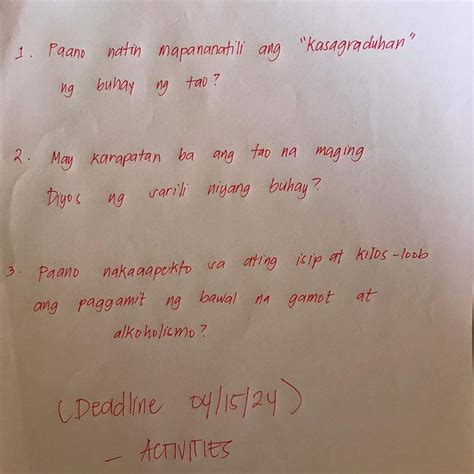 1. Paano natin mapananatili ang "kasagraduhan"
ng buhay ng tao?
2. May karapatan ba ang tao na maging
Diyos ng sarili niyang buhay?
3. Paano nakaaapekto sa ating isip at kilos-loob
ang paggamit ng bawal na gamot at
alkoholismo?
(Deadline 04/15/24)
- ACTIVITIES